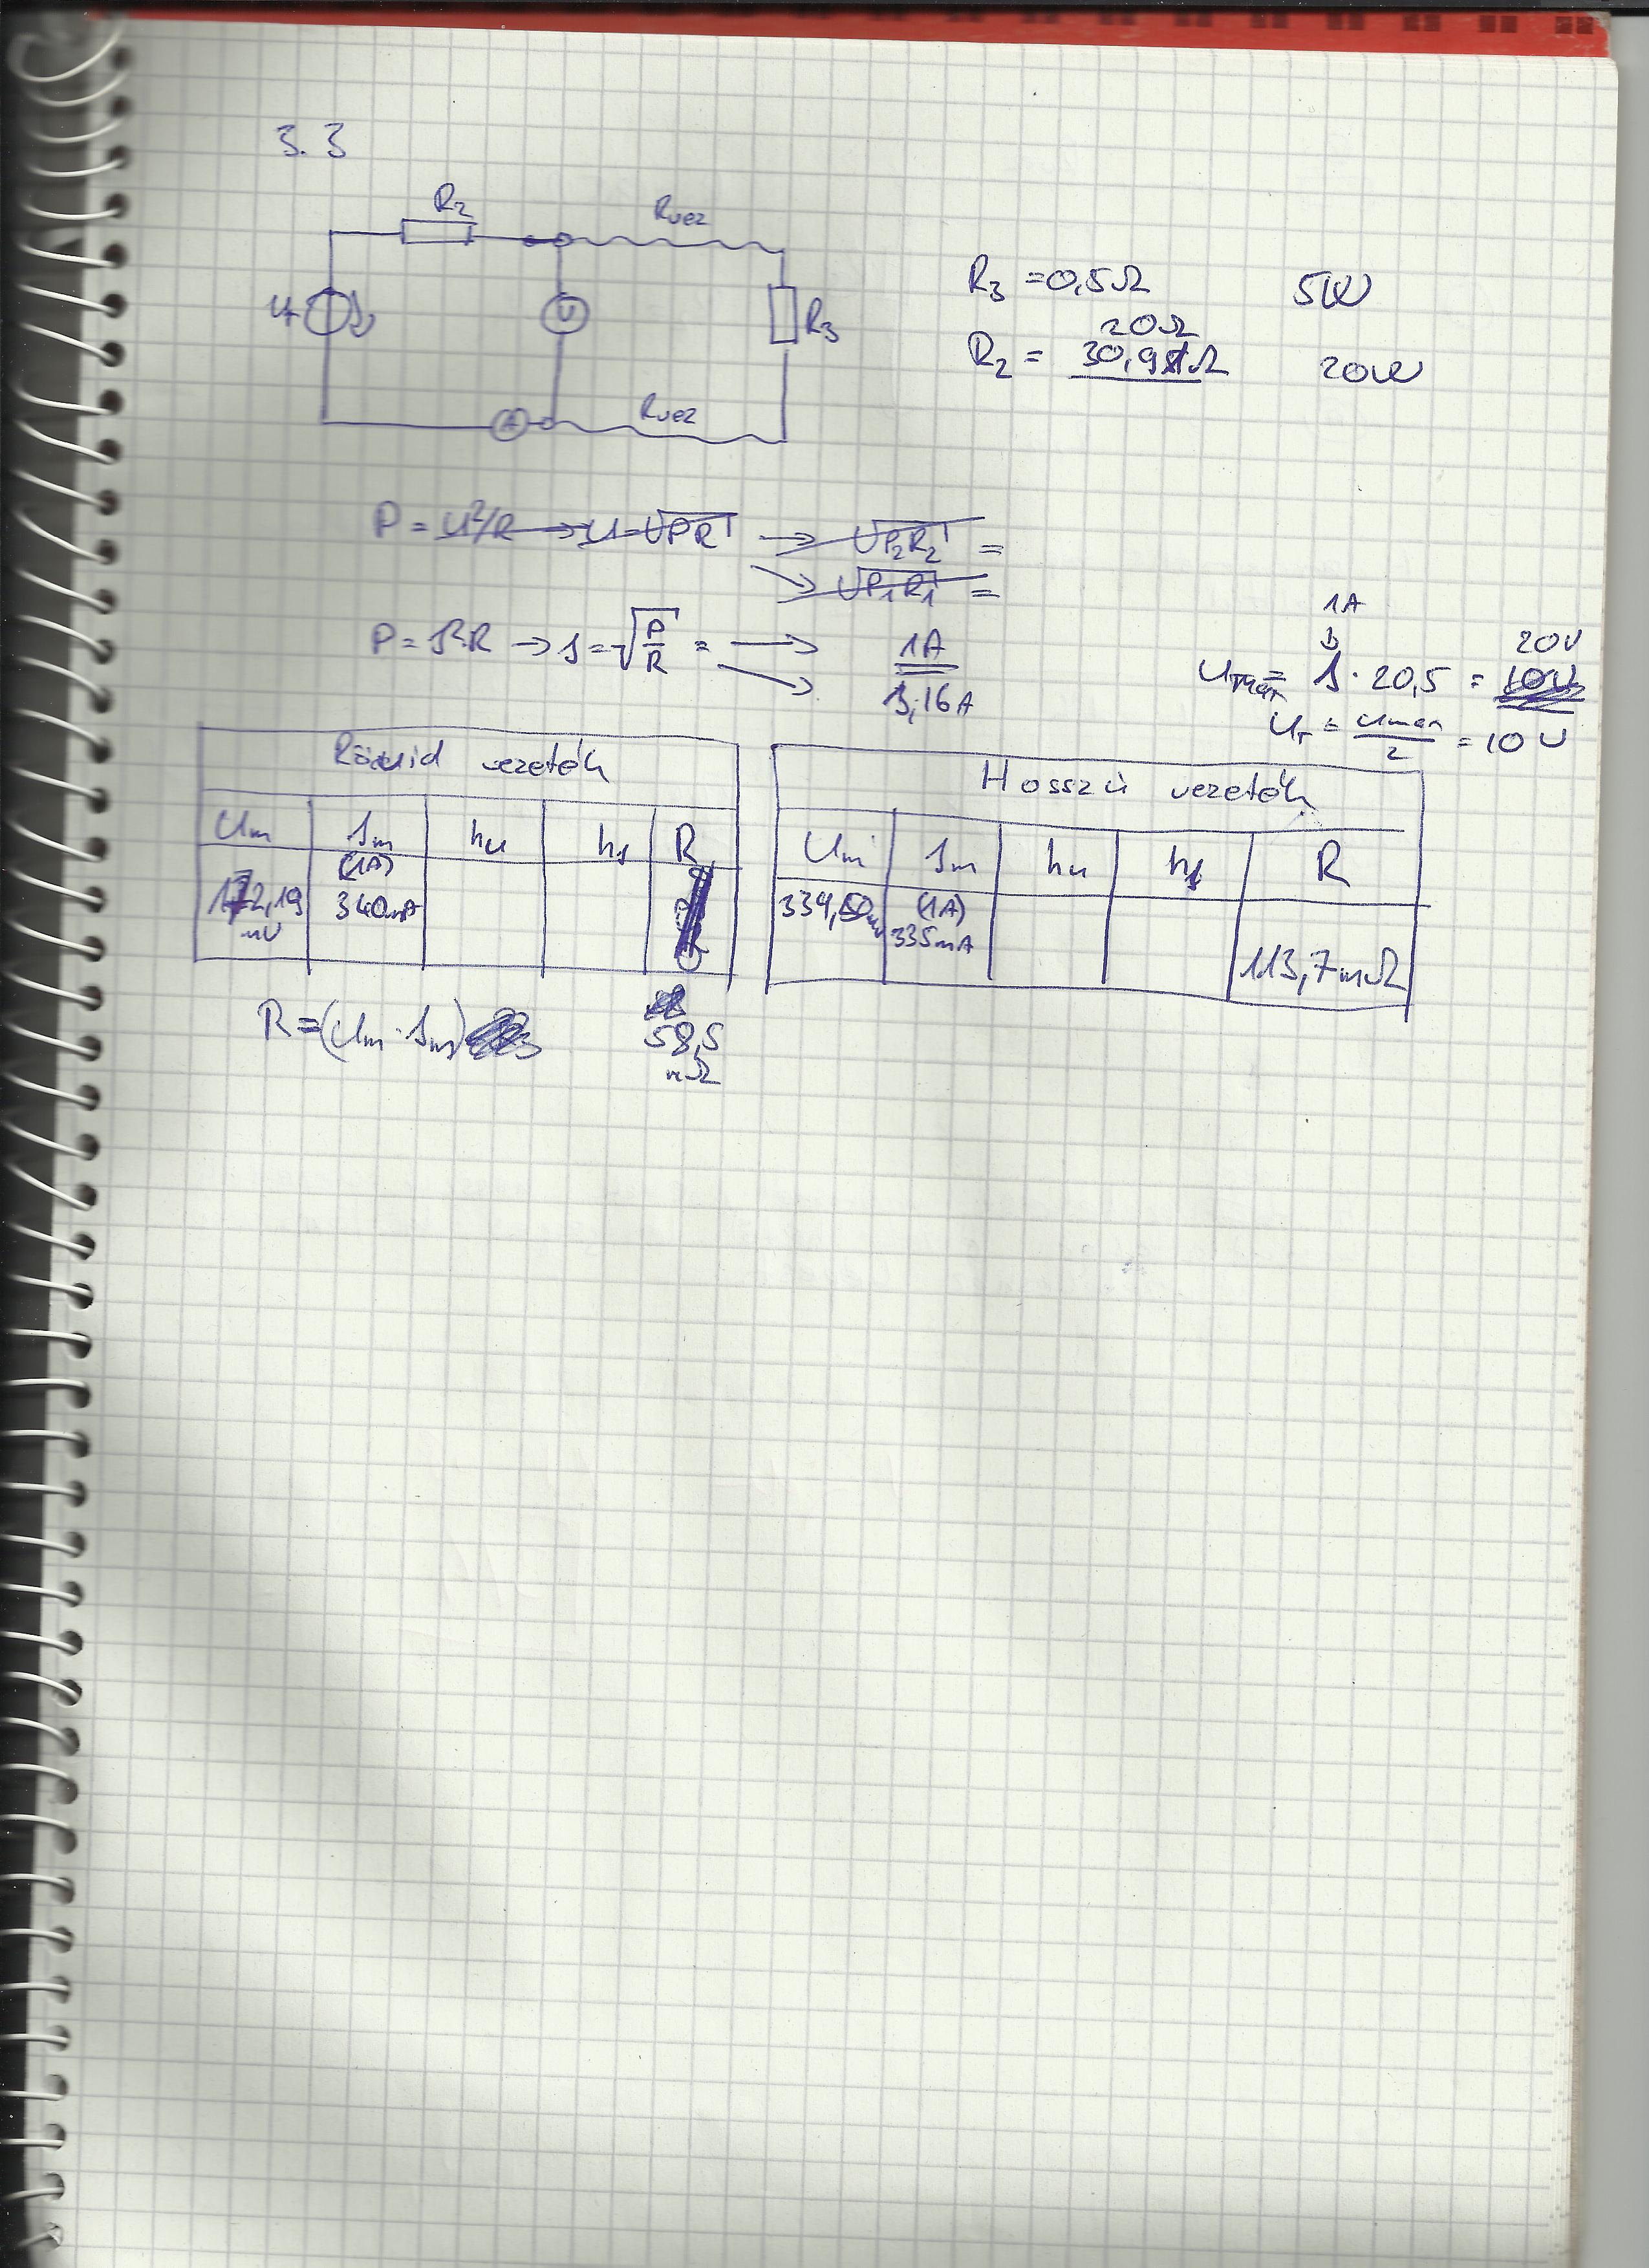 3.3
R2 Rvez
UT V R3
A Rvez
R3 = 0,5Ω 5W
20Ω
R2 = 30,9Ω 20W
P = U²/R → U = √PR → √P2R2 =
→ √P1R1 =
P = I²·R → I = √P/R = → 1A
→ 3,16A
1A
UTmax = I · 20,5 = 20V
UT = Umax/2 = 10V
Rövid vezeték
Um Im hu hI R
172,19 mV (1A) 340mA
58,5 mΩ
R = (Um · Im)
Hosszú vezeték
Um Im hu hI R
339,50mV (1A) 335mA 113,7mΩ